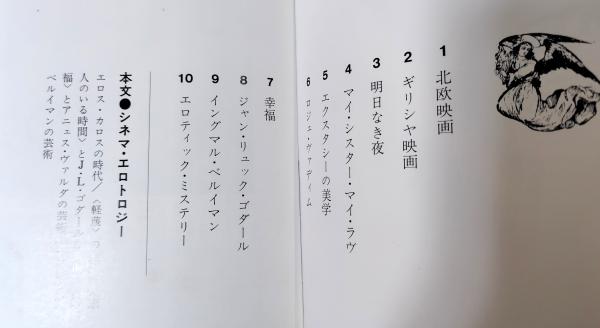 1 北欧映画
2 ギリシャ映画
3 明日なき夜
4 マイ・シスター・マイ・ラヴ
5 エクスタシーの美学
6 ロジェ・ヴァディム
7 幸福
8 ジャン・リュック・ゴダール
9 イングマル・ベルイマン
10 エロティック・ミステリー
本文●シネマ・エロトロジー
エロス・カロスの時代/〈軽蔑〉
人のいる時間〉とJ・L・ゴダール
福〉とアニェス・ヴァルダの芸術
ベルイマンの芸術